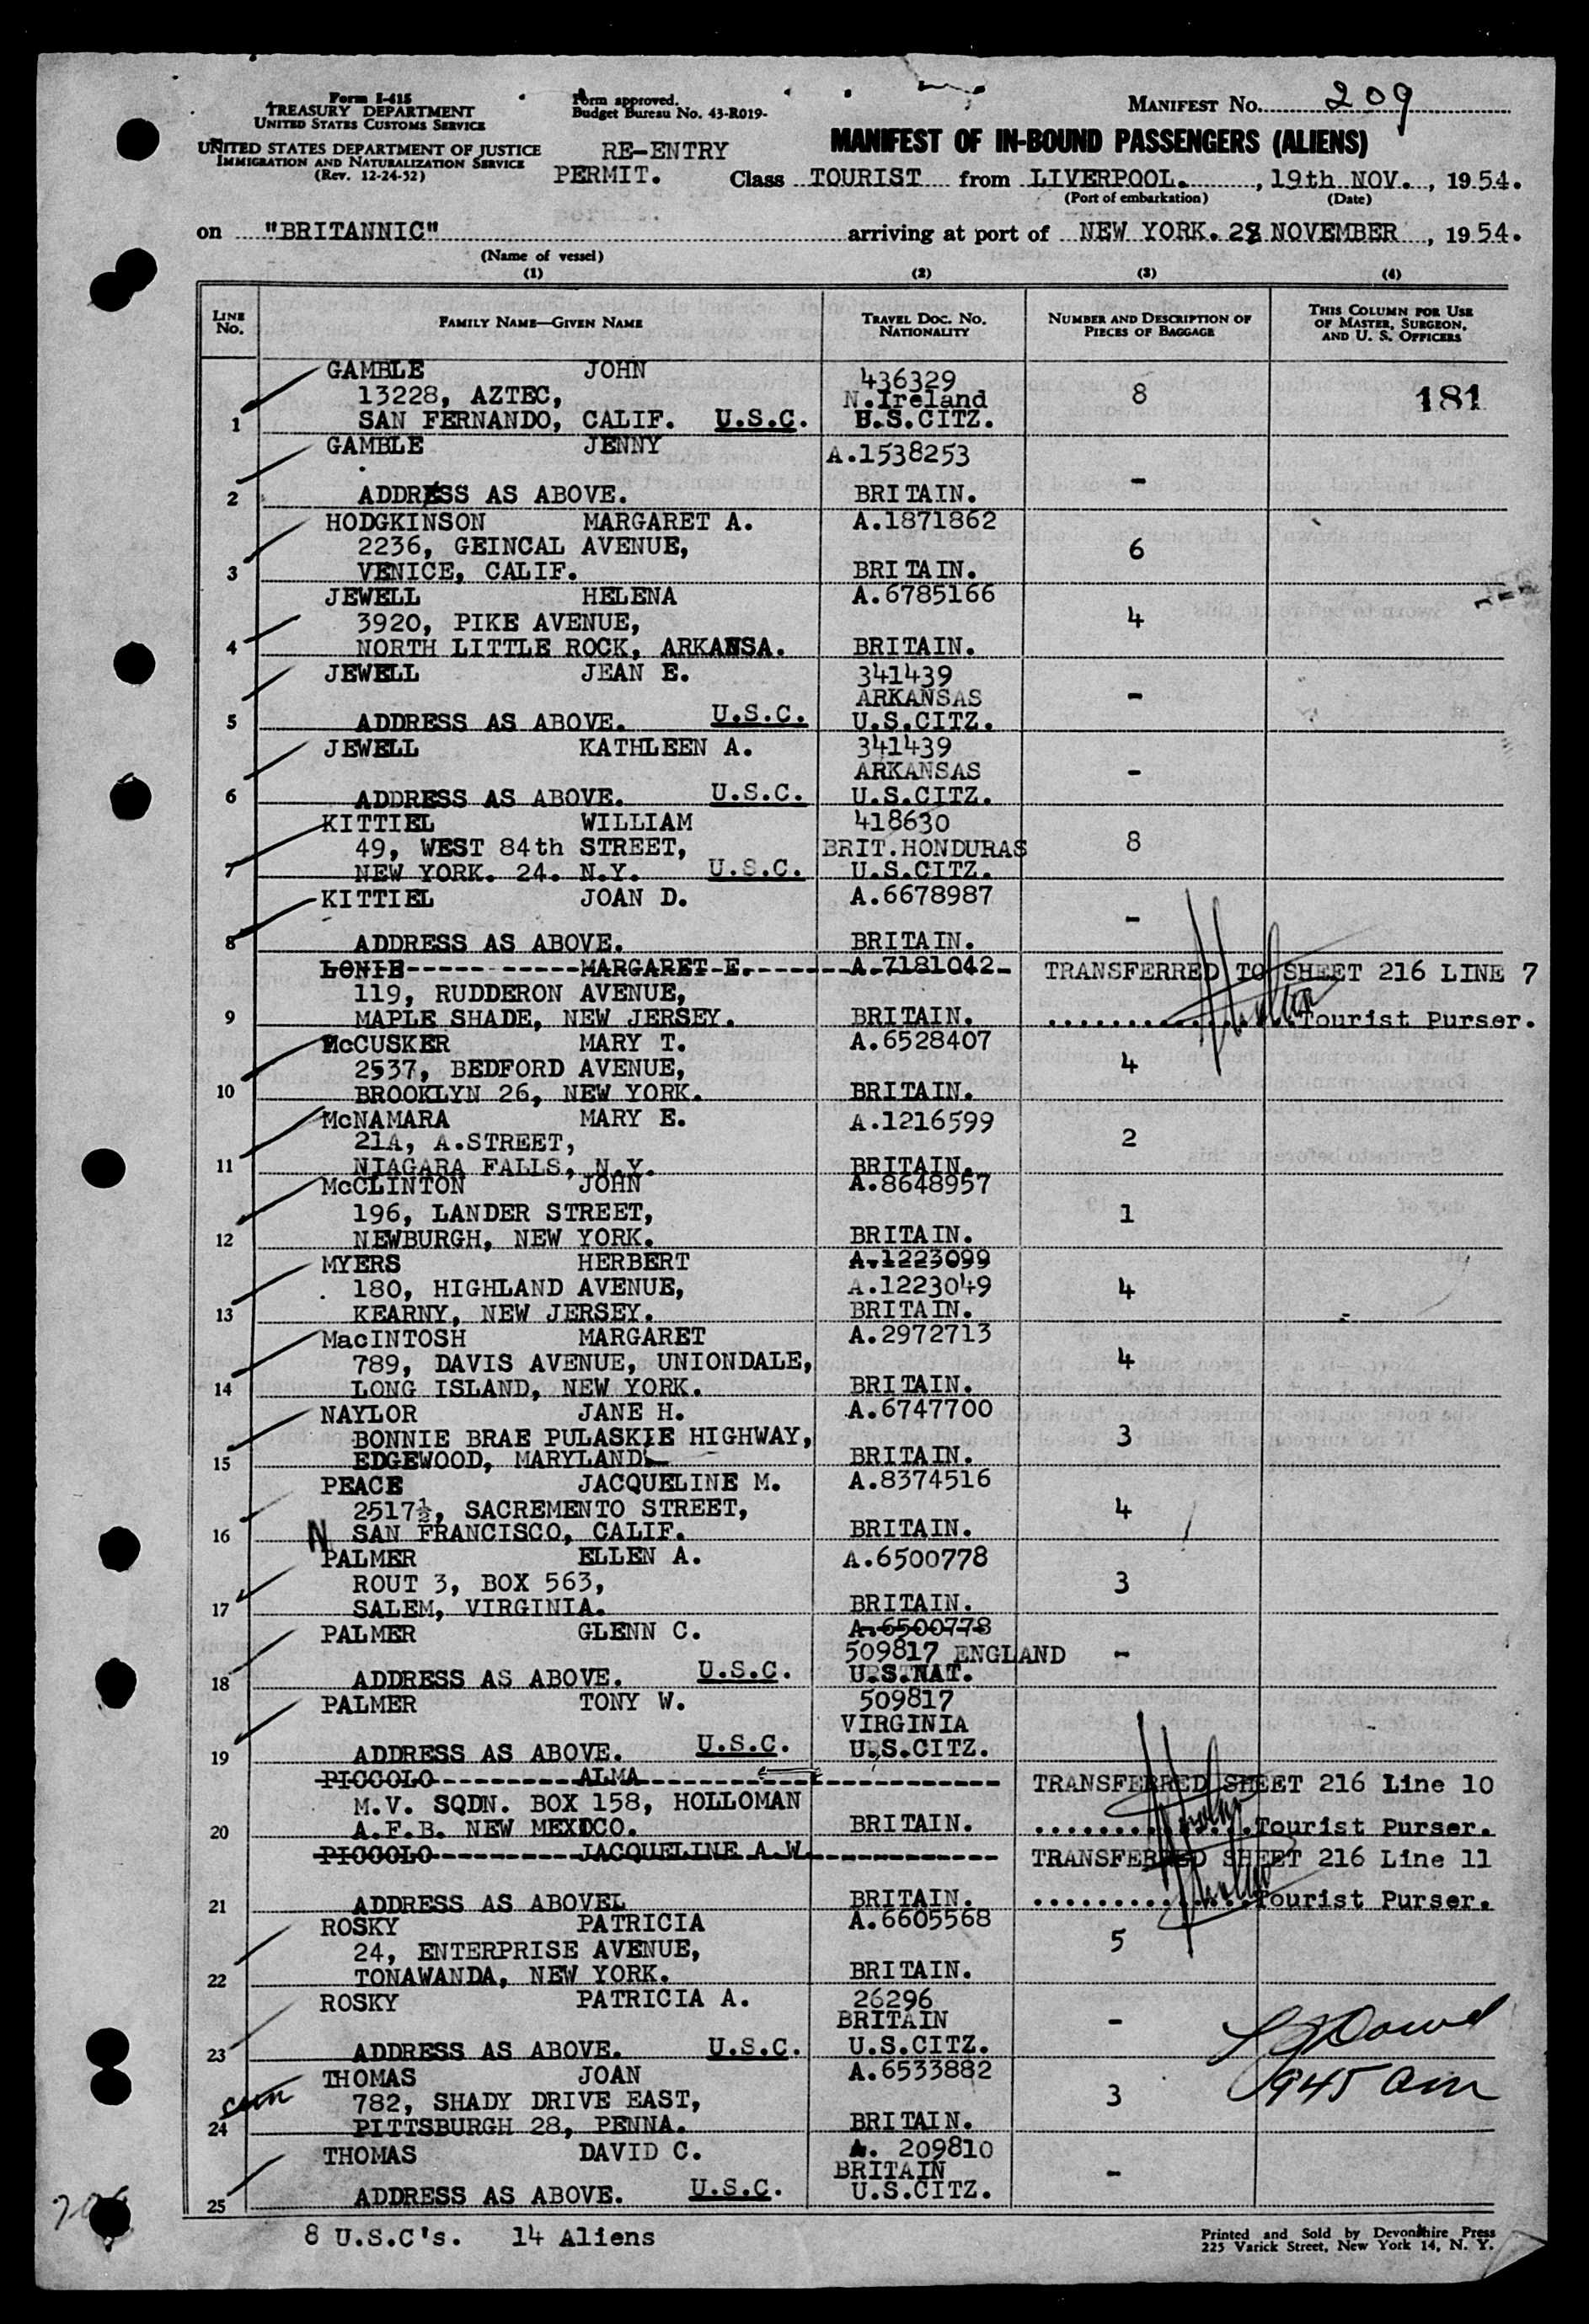 Form I-415
TREASURY DEPARTMENT
UNITED STATES CUSTOMS SERVICE
UNITED STATES DEPARTMENT OF JUSTICE
IMMIGRATION AND NATURALIZATION SERVICE
(Rev. 12-24-52)
Form approved.
Budget Bureau No. 43-R019-
RE-ENTRY
PERMIT.
MANIFEST NO. 209
MANIFEST OF IN-BOUND PASSENGERS (ALIENS)
Class TOURIST from LIVERPOOL. , 19th NOV. , 1954.
(Port of embarkation) (Date)
on "BRITANNIC" arriving at port of NEW YORK. 28 NOVEMBER , 1954.
(Name of vessel)
(1) (2) (3) (4)
LINE NO. FAMILY NAME—GIVEN NAME TRAVEL DOC. NO. NATIONALITY NUMBER AND DESCRIPTION OF PIECES OF BAGGAGE THIS COLUMN FOR USE OF MASTER, SURGEON, AND U. S. OFFICERS
GAMBLE JOHN 436329
13228, AZTEC, N.Ireland 8 181
1 SAN FERNANDO, CALIF. U.S.C. U.S.CITZ.
GAMBLE JENNY A.1538253
2 ADDRESS AS ABOVE. BRITAIN. -
HODGKINSON MARGARET A. A.1871862
2236, GEINCAL AVENUE, 6
3 VENICE, CALIF. BRITAIN.
JEWELL HELENA A.6785166
3920, PIKE AVENUE, 4
4 NORTH LITTLE ROCK, ARKANSA. BRITAIN.
JEWELL JEAN E. 341439
ARKANSAS -
5 ADDRESS AS ABOVE. U.S.C. U.S.CITZ.
JEWELL KATHLEEN A. 341439
ARKANSAS -
6 ADDRESS AS ABOVE. U.S.C. U.S.CITZ.
KITTIEL WILLIAM 418630
49, WEST 84th STREET, BRIT.HONDURAS 8
7 NEW YORK. 24. N.Y. U.S.C. U.S.CITZ.
KITTIEL JOAN D. A.6678987
-
8 ADDRESS AS ABOVE. BRITAIN.
LONIE MARGARET E. A.7181042 TRANSFERRED TO SHEET 216 LINE 7
119, RUDDERON AVENUE,
9 MAPLE SHADE, NEW JERSEY. BRITAIN. Tourist Purser.
McCUSKER MARY T. A.6528407
2537, BEDFORD AVENUE, 4
10 BROOKLYN 26, NEW YORK. BRITAIN.
McNAMARA MARY E. A.1216599
21A, A.STREET, 2
11 NIAGARA FALLS, N.Y. BRITAIN.
McCLINTON JOHN A.8648957
196, LANDER STREET, 1
12 NEWBURGH, NEW YORK. BRITAIN.
MYERS HERBERT A.1223099
180, HIGHLAND AVENUE, A.1223049 4
13 KEARNY, NEW JERSEY. BRITAIN.
MacINTOSH MARGARET A.2972713
789, DAVIS AVENUE, UNIONDALE, 4
14 LONG ISLAND, NEW YORK. BRITAIN.
NAYLOR JANE H. A.6747700
BONNIE BRAE PULASKIE HIGHWAY, 3
15 EDGEWOOD, MARYLAND. BRITAIN.
PEACE JACQUELINE M. A.8374516
2517½, SACREMENTO STREET, 4
16 N SAN FRANCISCO, CALIF. BRITAIN.
PALMER ELLEN A. A.6500778
ROUT 3, BOX 563, 3
17 SALEM, VIRGINIA. BRITAIN.
PALMER GLENN C. A.6500778
509817 ENGLAND -
18 ADDRESS AS ABOVE. U.S.C. U.S.NAT.
PALMER TONY W. 509817
VIRGINIA
19 ADDRESS AS ABOVE. U.S.C. U.S.CITZ.
PICCOLO ALMA TRANSFERRED SHEET 216 Line 10
M.V. SQDN. BOX 158, HOLLOMAN
20 A.F.B. NEW MEXICO. BRITAIN. Tourist Purser.
PICCOLO JACQUELINE A.W. TRANSFERRED SHEET 216 Line 11
21 ADDRESS AS ABOVEL BRITAIN. Tourist Purser.
ROSKY PATRICIA A.6605568
24, ENTERPRISE AVENUE, 5
22 TONAWANDA, NEW YORK. BRITAIN.
ROSKY PATRICIA A. 26296
BRITAIN -
23 ADDRESS AS ABOVE. U.S.C. U.S.CITZ.
THOMAS JOAN A.6533882
782, SHADY DRIVE EAST, 3 945 am
24 PITTSBURGH 28, PENNA. BRITAIN.
THOMAS DAVID C. A. 209810
BRITAIN -
25 ADDRESS AS ABOVE. U.S.C. U.S.CITZ.
8 U.S.C's. 14 Aliens
Printed and Sold by Devonshire Press
225 Varick Street, New York 14, N. Y.